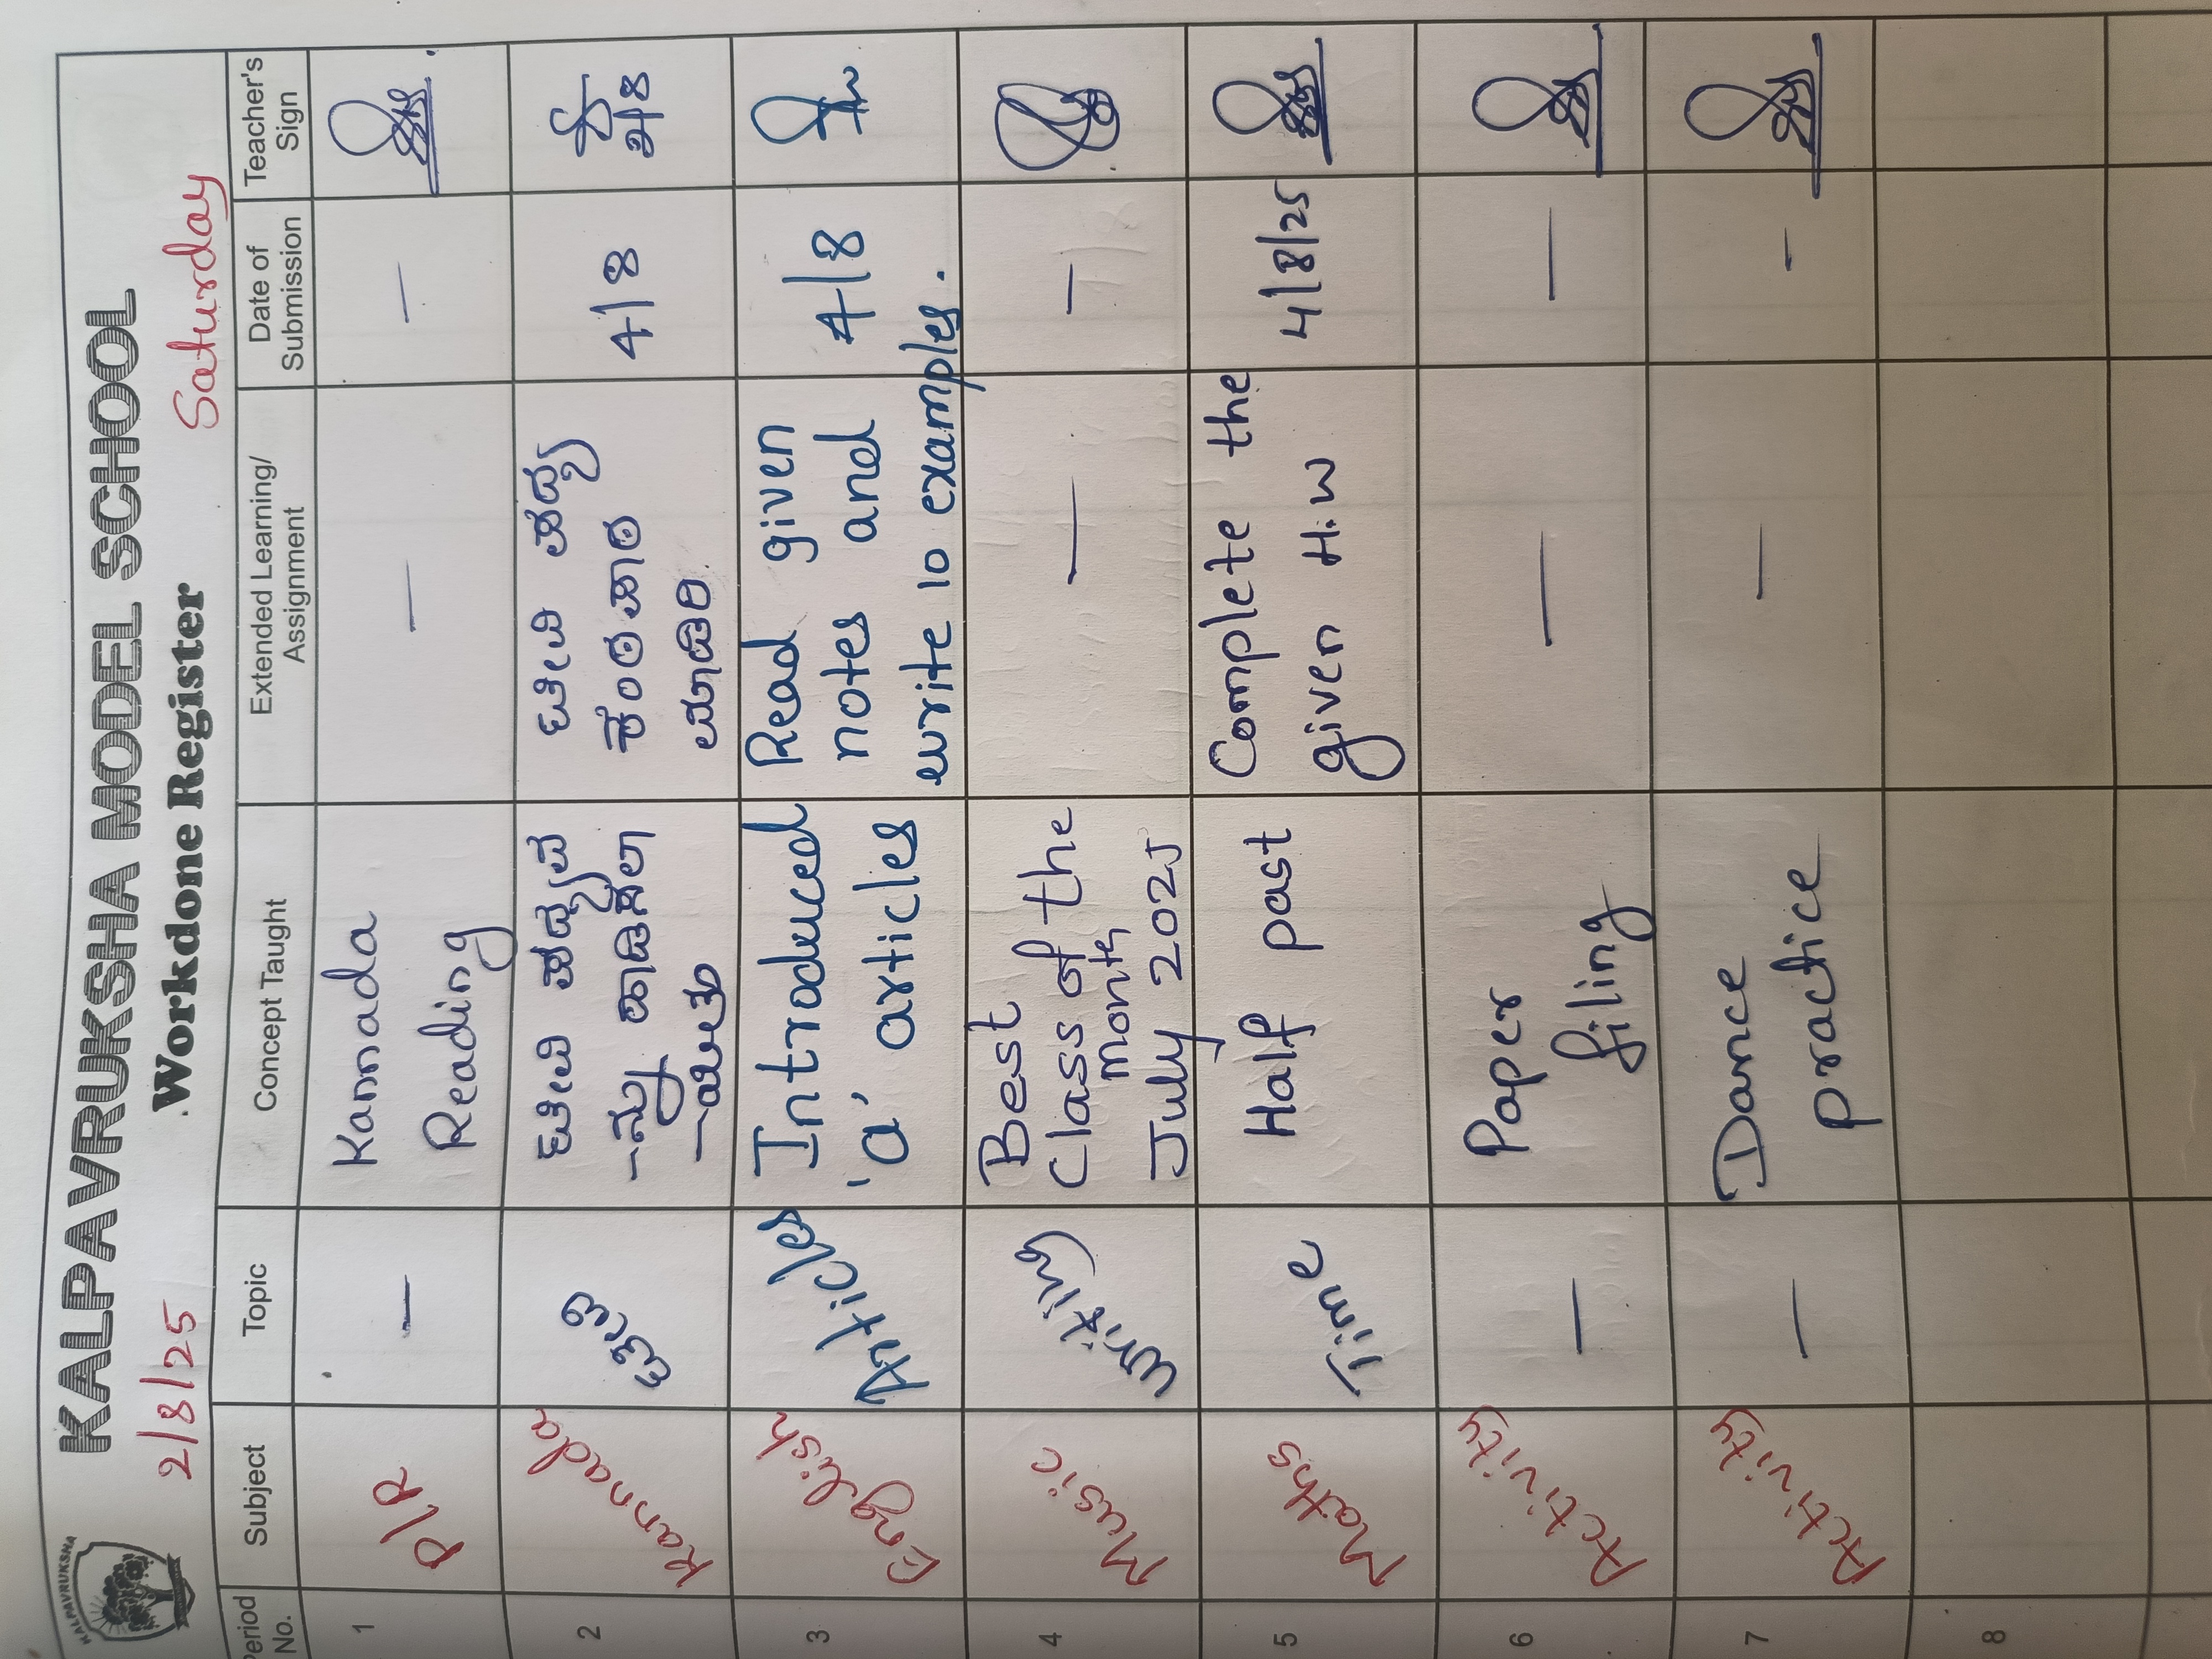 KALPAVRUKSHA
KALPAVRUKSHA MODEL SCHOOL
2/8/25 Workdone Register Saturday
Period No. Subject Topic Concept Taught Extended Learning/ Assignment Date of Submission Teacher's Sign
1 P/R — Kannada — —
Reading
2 Kannada ಟಿವಿ ಪದ್ಯ 4/8
ಕಂಠಪಾಠ
ಮಾಡಿರಿ
3 English Articles Introduced Read given 4/8
'a' articles notes and
write 10 examples.
4 Music writing Best — —
Class of the
month
July 2025
5 Maths Time Half past Complete the 4/8/25
given H.W
6 Activity — Paper — —
filing
7 Activity — Dance — —
practice
8